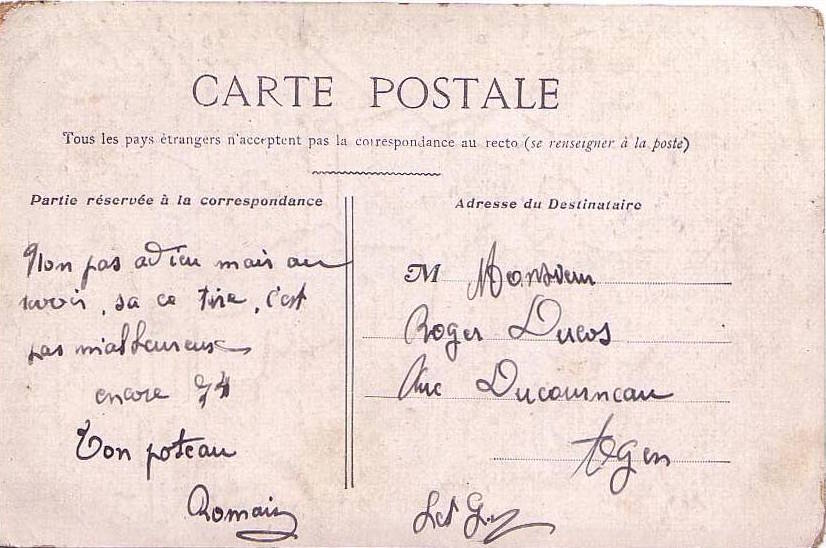 CARTE POSTALE
Tous les pays étrangers n'acceptent pas la correspondance au recto (se renseigner à la poste)
Partie réservée à la correspondance
Non pas adieu mais au
revoir, sa ce tire, c'est
pas malheureux
encore 74
Ton poteau
Romain
Adresse du Destinataire
M Monsieur
Roger Ducos
Rue Ducourneau
Agen
Lot